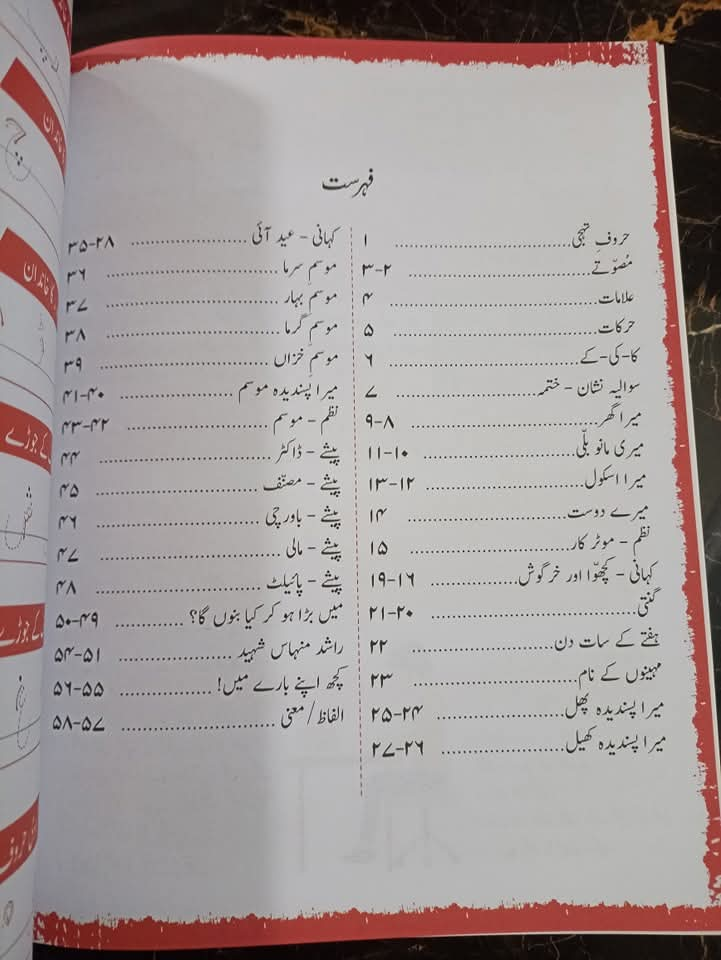 فہرست
حروفِ تہجی ........ ۱
مُصوّتے ........ ۲-۳
علامات ........ ۴
حرکات ........ ۵
کا-کی-کے ........ ۶
سوالیہ نشان - ختمہ ........ ۷
میرا گھر ........ ۸-۹
میری مانو بلّی ........ ۱۰-۱۱
میرا اسکول ........ ۱۲-۱۳
میرے دوست ........ ۱۴
نظم - موٹر کار ........ ۱۵
کہانی - کچھوّا اور خرگوش ........ ۱۶-۱۹
گنتی ........ ۲۰-۲۱
ہفتے کے سات دن ........ ۲۲
مہینوں کے نام ........ ۲۳
میرا پسندیدہ پھل ........ ۲۴-۲۵
میرا پسندیدہ کھیل ........ ۲۶-۲۷
کہانی - عید آئی ........ ۲۸-۳۵
موسمِ سرما ........ ۳۶
موسمِ بہار ........ ۳۷
موسمِ گرما ........ ۳۸
موسمِ خزاں ........ ۳۹
میرا پسندیدہ موسم ........ ۴۰-۴۱
نظم - موسم ........ ۴۲-۴۳
پیشے - ڈاکٹر ........ ۴۴
پیشے - مصنّف ........ ۴۵
پیشے - باورچی ........ ۴۶
پیشے - مالی ........ ۴۷
پیشے - پائیلٹ ........ ۴۸
میں بڑا ہو کر کیا بنوں گا؟ ........ ۴۹-۵۰
راشد منہاس شہید ........ ۵۱-۵۴
کچھ اپنے بارے میں! ........ ۵۵-۵۶
الفاظ/معنی ........ ۵۷-۵۸
خاندان
کا خاندان
کے جوڑے
کے جوڑے